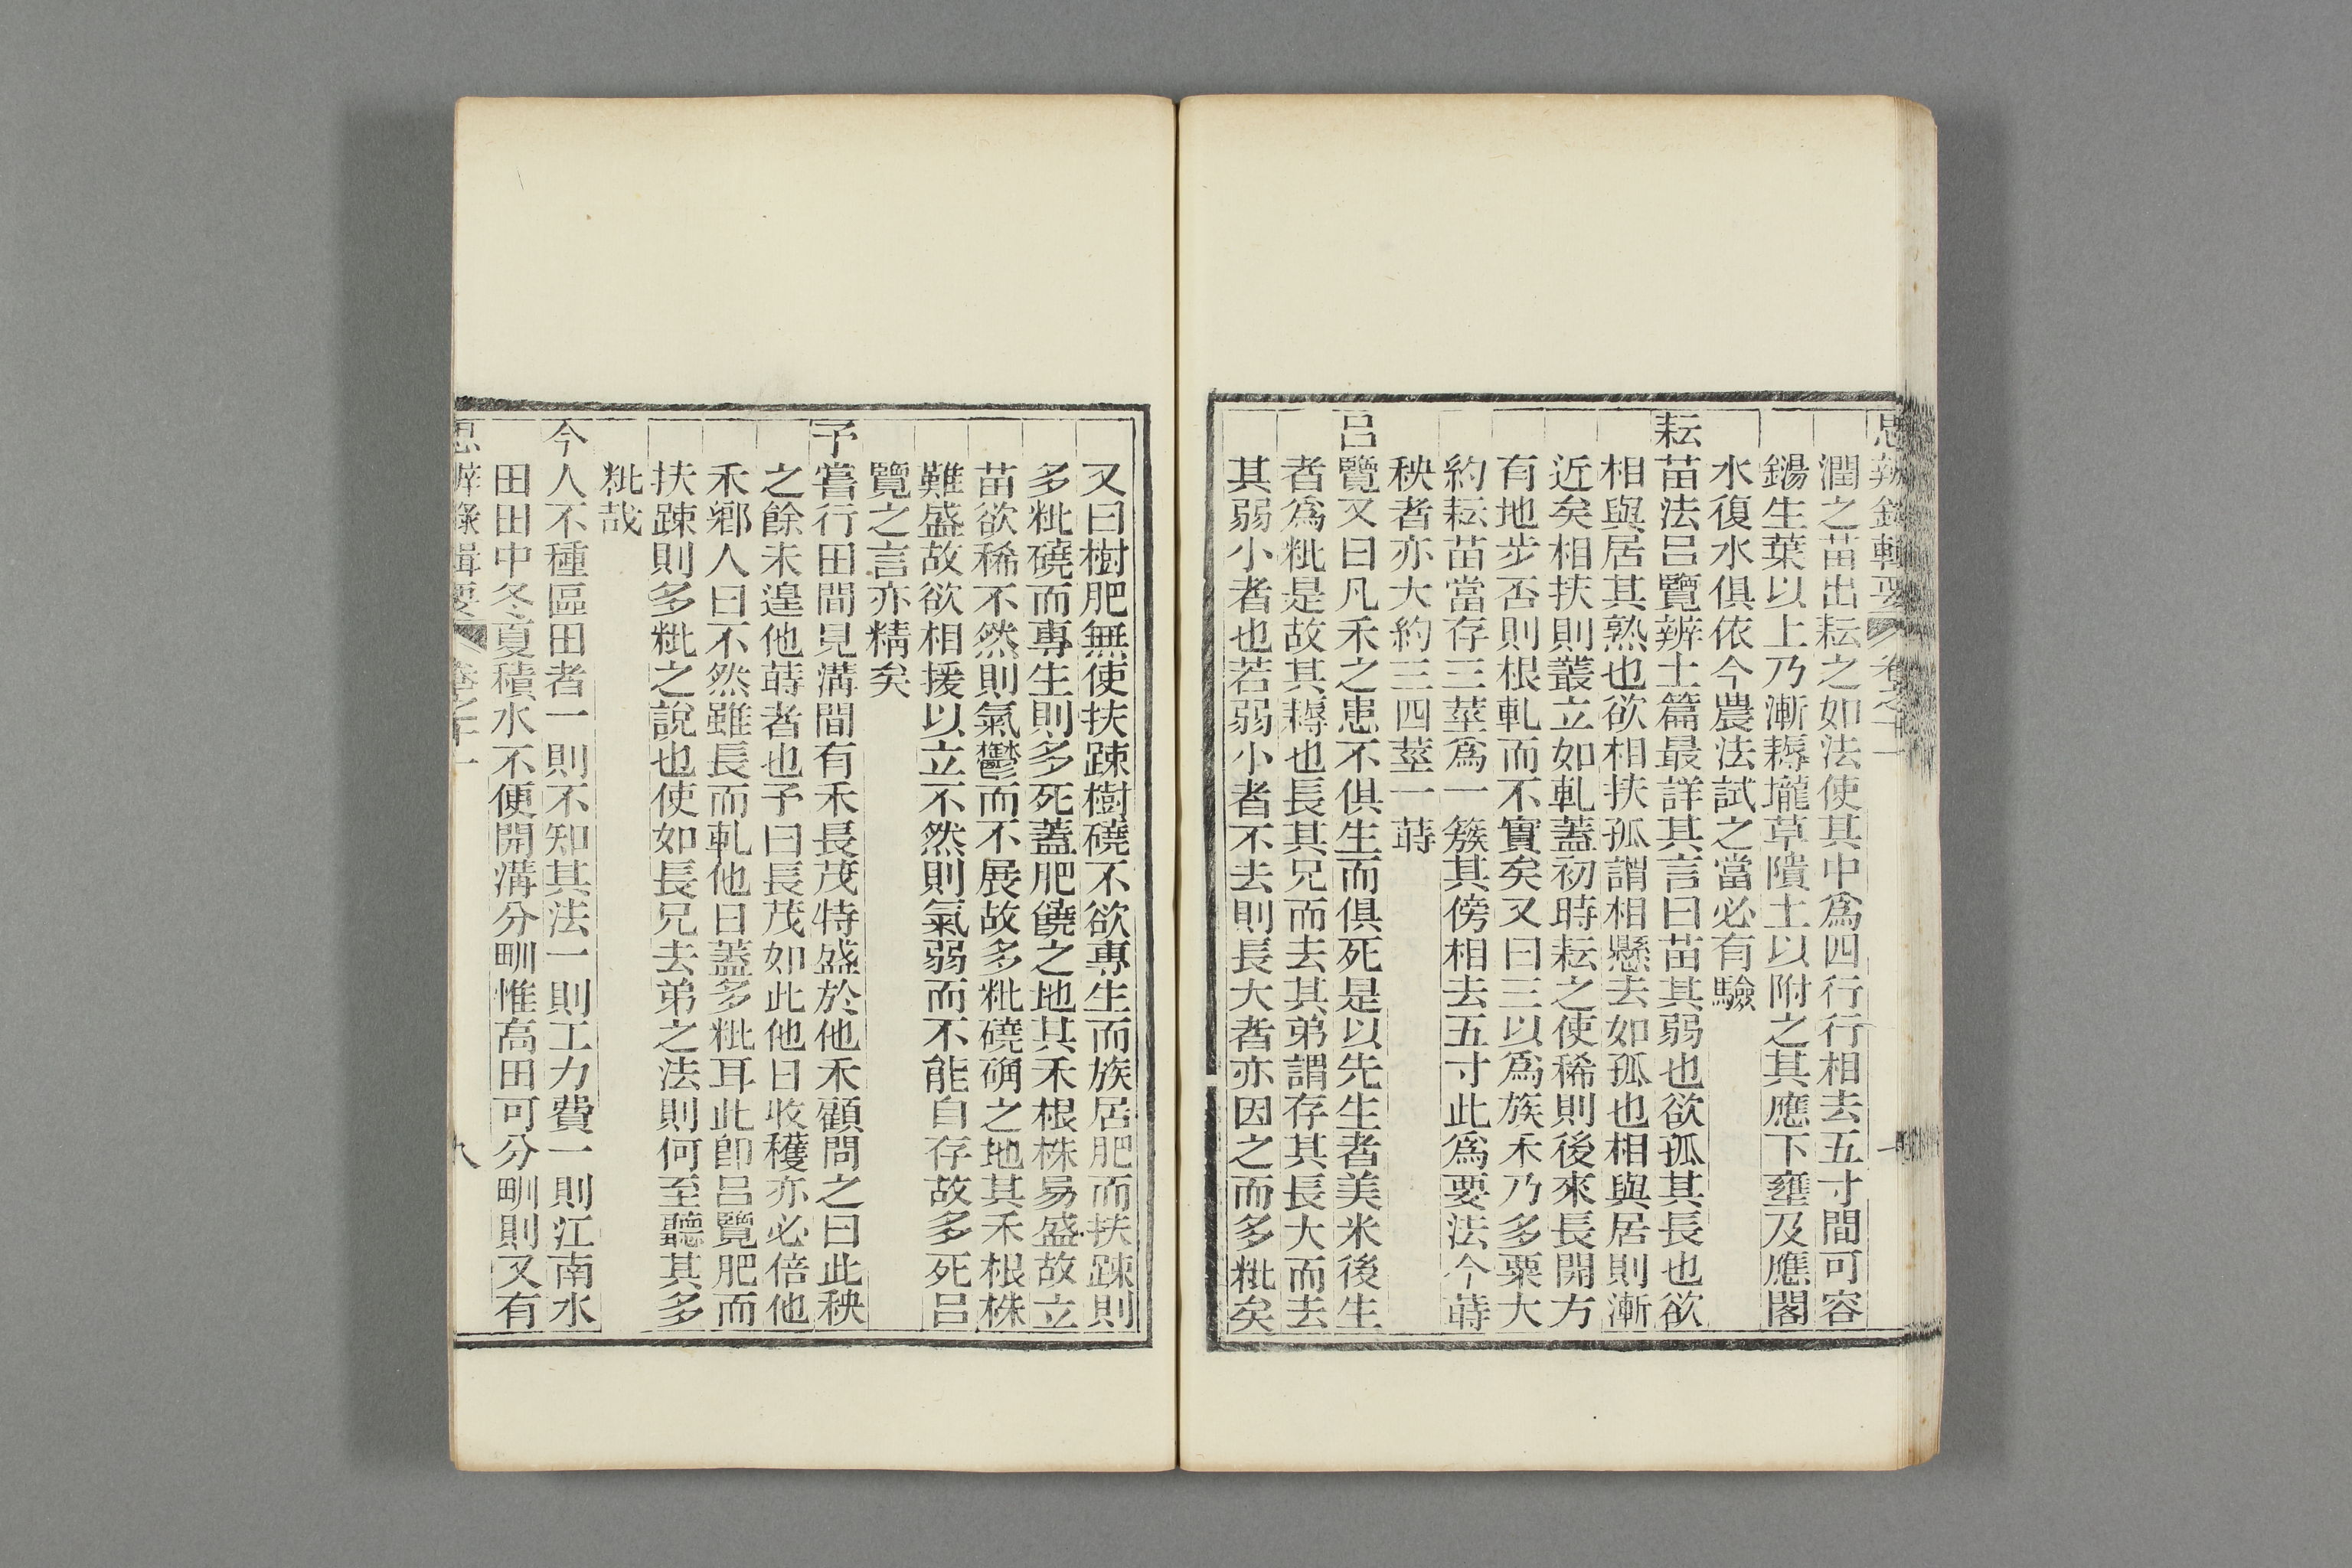 思辨錄輯要 卷之十一
潤之苗出耘之如法使其中爲四行行相去五寸間可容
鐋生葉以上乃漸耨壠草隤土以附之其應下壅及應閣
水復水俱依今農法試之當必有驗
耘苗法呂覽辨土篇最詳其言曰苗其弱也欲孤其長也欲
相與居其熟也欲相扶孤謂相懸去如孤也相與居則漸
近矣相扶則叢立如軋蓋初時耘之使稀則後來長開方
有地步否則根軋而不實矣又曰三以爲族禾乃多粟大
約耘苗當存三莖爲一簇其傍相去五寸此爲要法今蒔
秧者亦大約三四莖一蒔
呂覽又曰凡禾之患不俱生而俱死是以先生者美米後生
者爲粃是故其耨也長其兄而去其弟謂存其長大而去
其弱小者也若弱小者不去則長大者亦因之而多粃矣
又曰樹肥無使扶踈樹磽不欲專生而族居肥而扶踈則
多粃磽而專生則多死蓋肥饒之地其禾根株易盛故立
苗欲稀不然則氣鬱而不展故多粃磽确之地其禾根株
難盛故欲相援以立不然則氣弱而不能自存故多死呂
覽之言亦精矣
予嘗行田間見溝間有禾長茂特盛於他禾顧問之曰此秧
之餘未遑他蒔者也予曰長茂如此他日收穫亦必倍他
禾鄉人曰不然雖長而軋他日蓋多粃耳此卽呂覽肥而
扶踈則多粃之說也使如長兄去弟之法則何至聽其多
粃哉
今人不種區田者一則不知其法一則工力費一則江南水
田田中冬夏積水不便開溝分甽惟高田可分甽則又有
思辨錄輯要 卷之十一 八